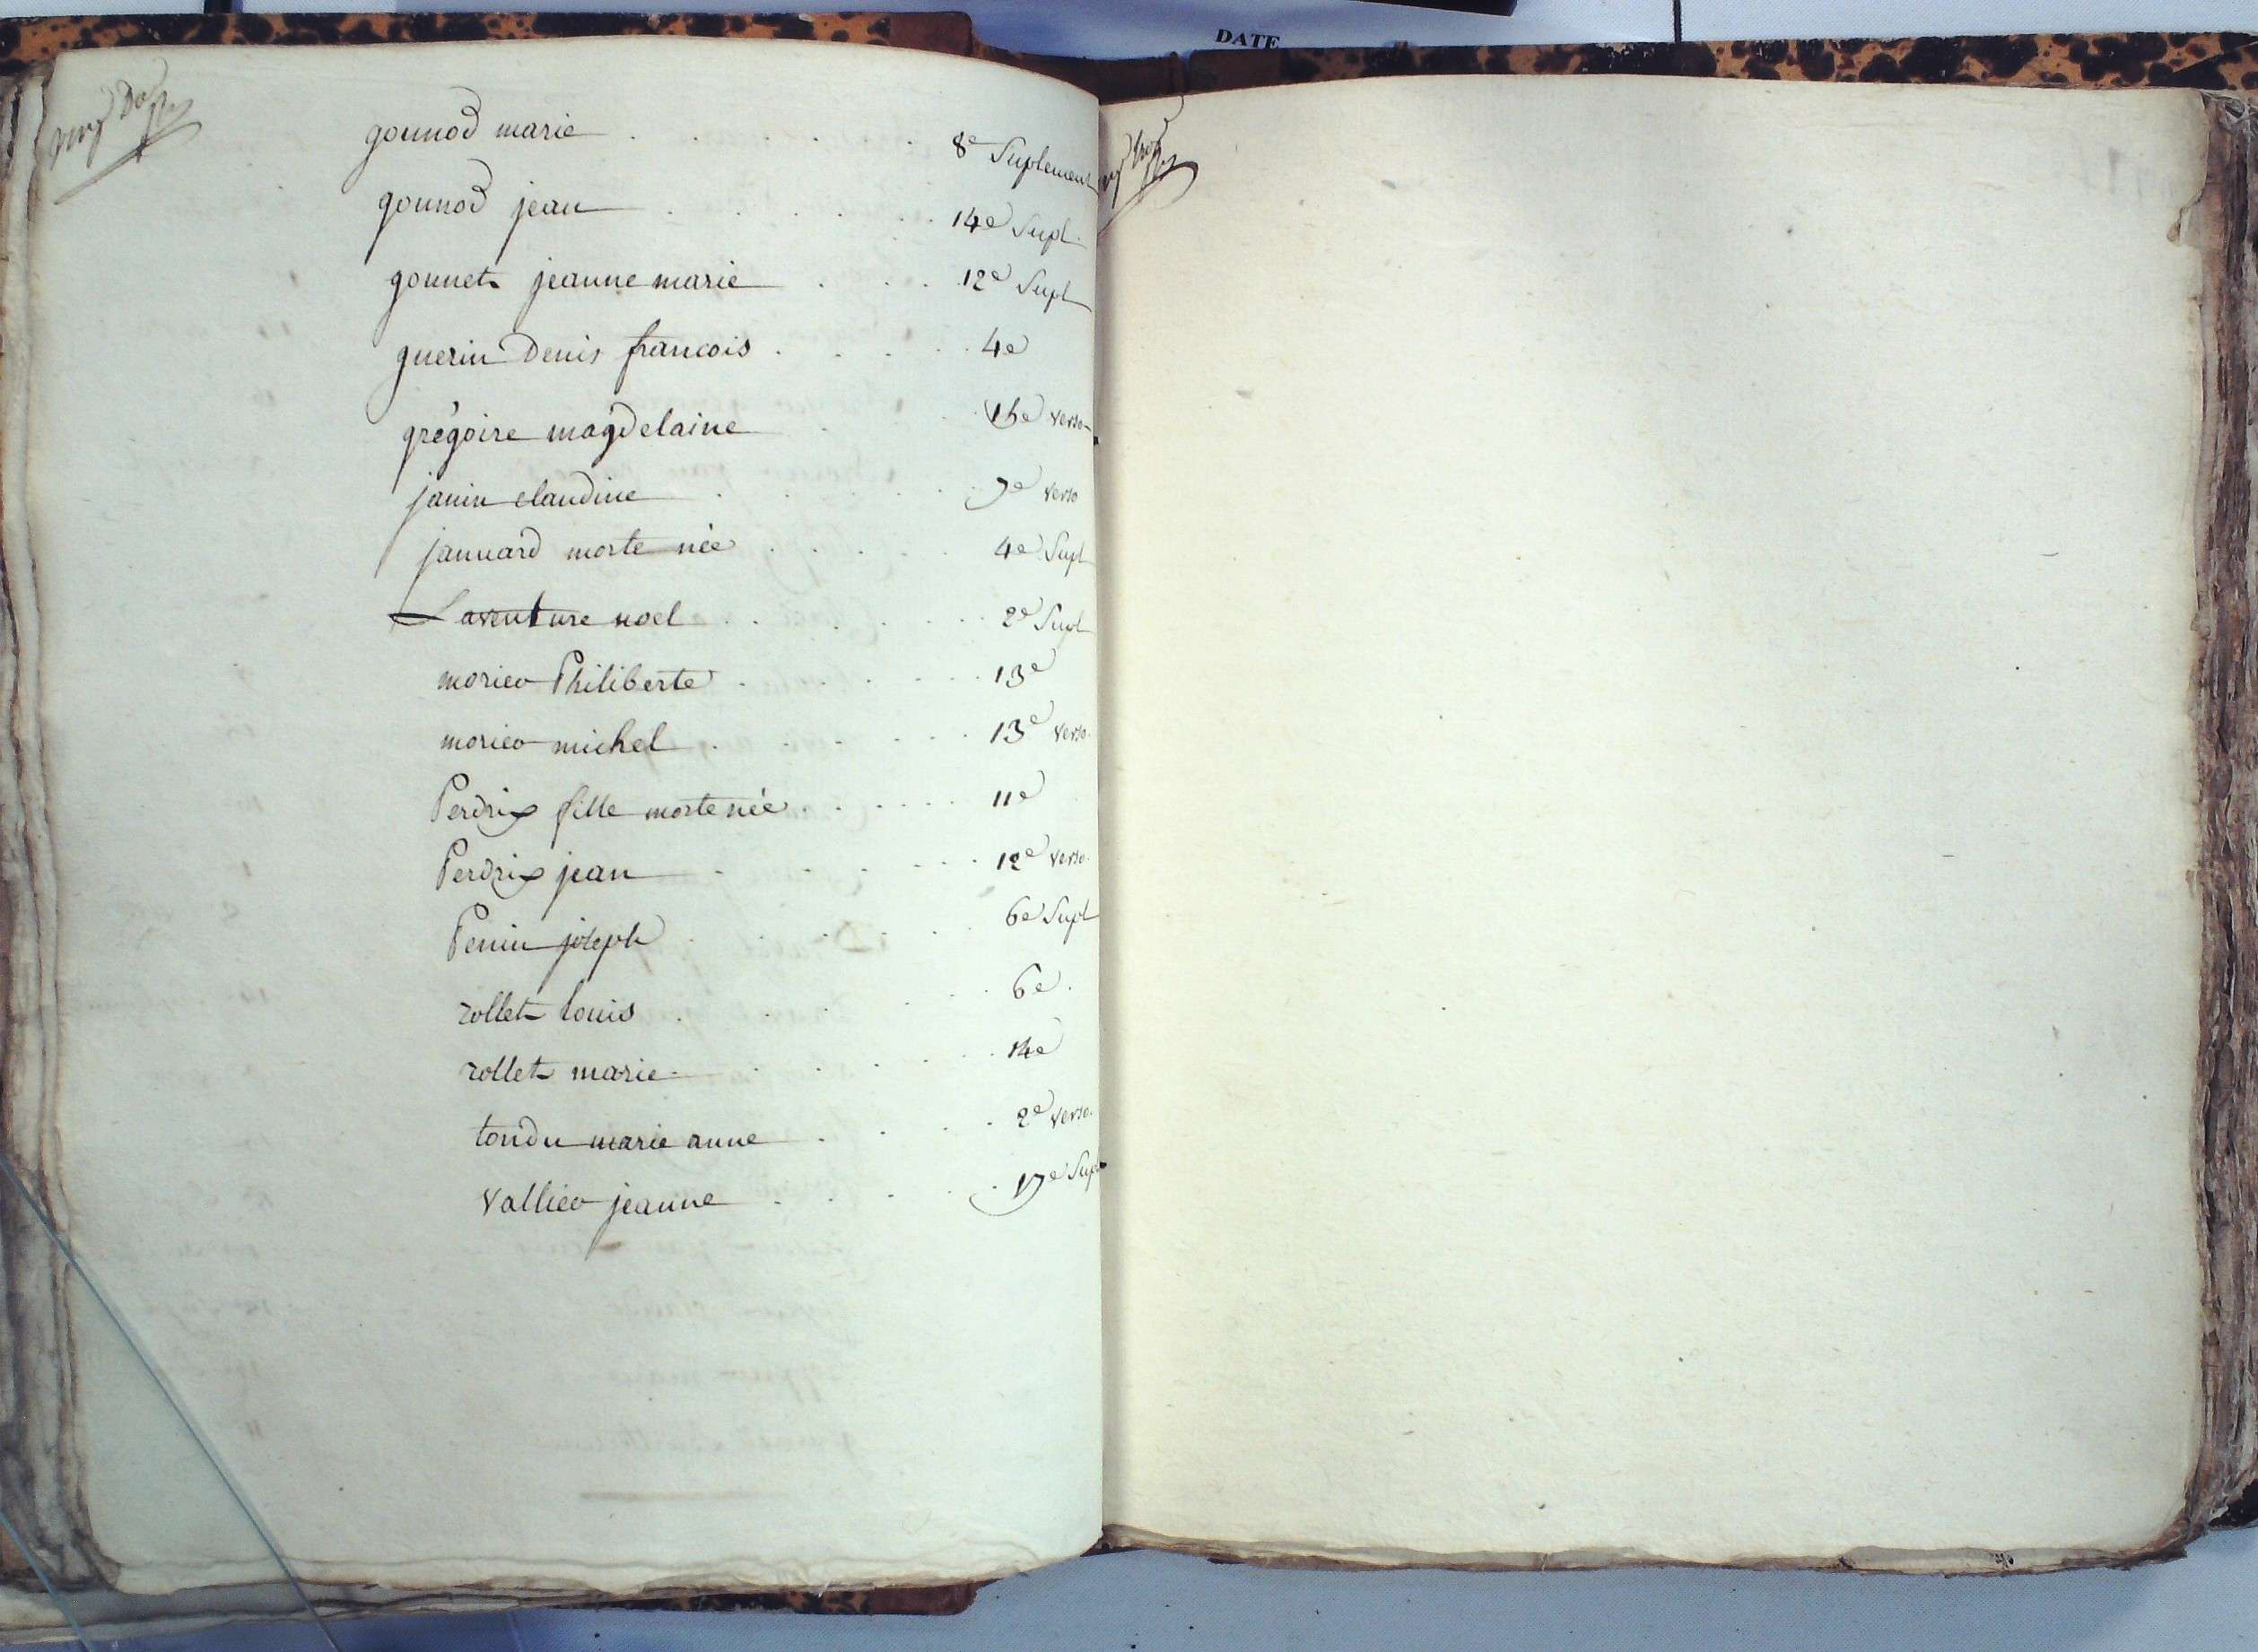 DATE
gounod marie . . . . . . 8e Suplement
gounod jean . . . . . . 14e Supl.
gonnet jeanne marie . . . 12e Supl
guerin Denis francois . . . . 4e
grégoire magdelaine . . verso
janin claudine . . . . . 7e verso
januard morte née . . . . 4e Supl
Laventure noel . . . . . 2e Supl
morico Philiberte . . . . . 13e
morico michel . . . . . 13e verso.
Perdrix fille morte née . . . . 11e
Perdrix jean . . . . . 12e verso.
Penin joseph . . . . . 6e Supl
rollet louis . . . . . 6e.
rollet marie . . . . 14e
tondu marie anne . . . . 2e verso.
Vallico jeanne . . . . 17e Supl